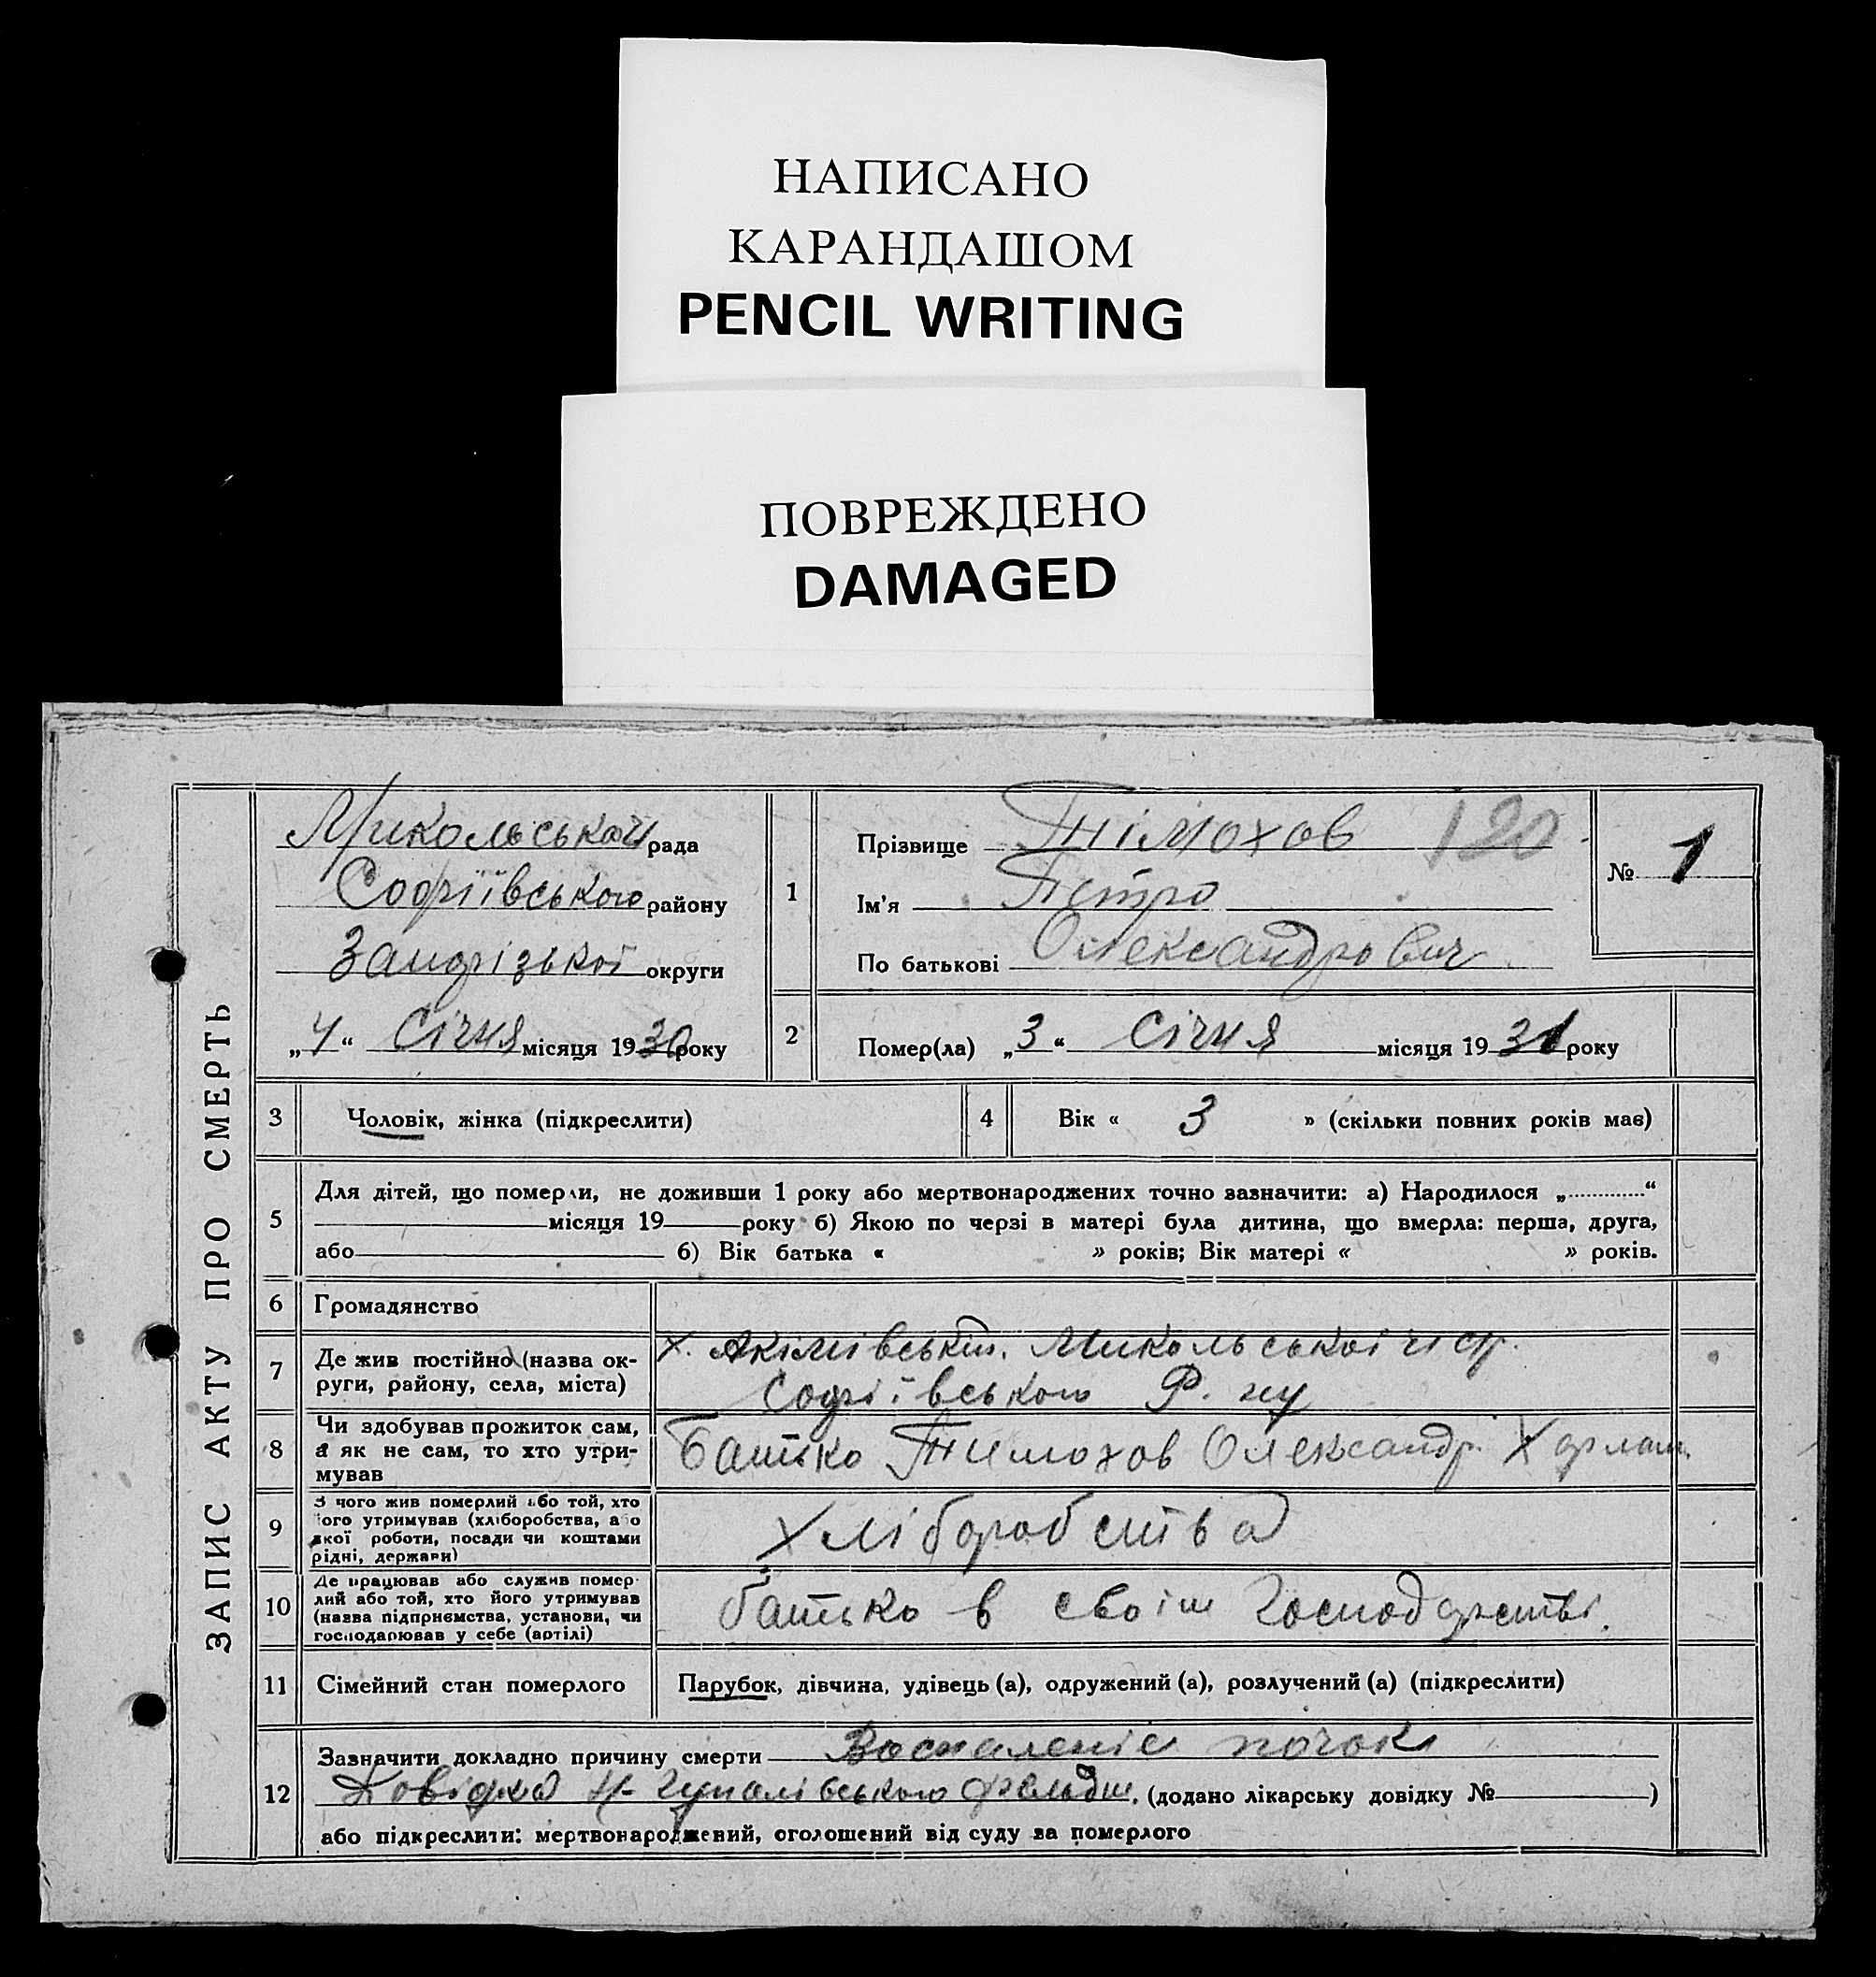 НАПИСАНО
КАРАНДАШОМ
PENCIL WRITING
ПОВРЕЖДЕНО
DAMAGED
ЗАПИС АКТУ ПРО СМЕРТЬ
Микольськоі рада
Софіївського району
округи
„4“ Січня місяця 1930 року
1
Прізвище Тімохов 120
Ім'я Петро
По батькові Олександрович
№ 1
2
Помер(ла) „3“ Січня місяця 19 року
3 Чоловік, жінка (підкреслити)
4 Вік « 3 » (скільки повних років має)
5
Для дітей, що померли, не доживши 1 року або мертвонароджених точно зазначити: а) Народилося „............“
місяця 19 року б) Якою по черзі в матері була дитина, що вмерла: перша, друга,
або б) Вік батька « » років; Вік матері « » років.
6 Громадянство
7 Де жив постійно (назва ок-
руги, району, села, міста)
х. Микольськоі
Софіївського Р. ну
8 Чи здобував прожиток сам,
а як не сам, то хто утри-
мував
Батько Тимохов Олександр Харлам.
9 З чого жив померлий або той, хто
його утримував (хліборобства, або
якої роботи, посади чи коштами
рідні, держави)
Хліборобства
10 Де працював або служив помер-
лий або той, хто його утримував
(назва підприємства, установи, чи
господарював у себе (артілі)
батько в своім господарстві.
11 Сімейний стан померлого
Парубок, дівчина, удівець (а), одружений (а), розлучений (а) (підкреслити)
12
Зазначити докладно причину смерти Воспаленіе почок
Довідка фельдш. (додано лікарську довідку № )
або підкреслити: мертвонароджений, оголошений від суду за померлого